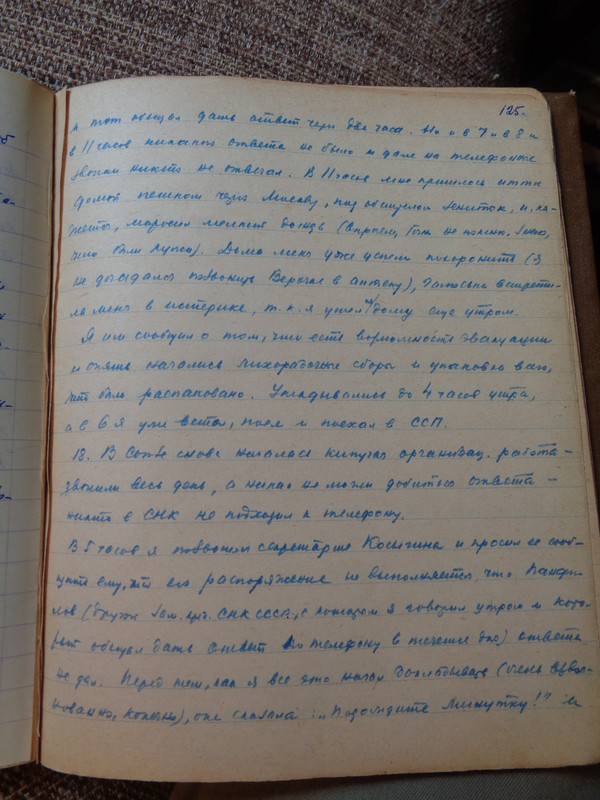 125.
и тот обещал дать ответ через два часа. Но и в 7 и в 8 и
в 11 часов никакого ответа не было и даже на телефонные
звонки никто не отвечал. В 11 часов мне пришлось итти
домой пешком через Москву, под обстрелом зениток, и, ка-
жется, моросил мелкий дождь (впрочем, точно не помню, знаю,
что были лужи). Дома меня уже успели похоронить (я
не догадался позвонить Верочке в аптеку), Галочка встрети-
ла меня в истерике, т.к. я ушел из дому еще утром.
Я им сообщил о том, что есть возможность эвакуации
и опять начались лихорадочные сборы и упаковка всего,
что было распаковано. Укладывались до 4 часов утра,
а в 6 я уже встал, поел и поехал в ССП.
18. В Союзе снова началась кипучая организац. работа –
звонили весь день, а никак не могли добиться ответа –
никто в СНК не подходил к телефону.
В 5 часов я позвонил секретарше Косыгина и просил ее сооб-
щить ему, что его распоряжение не выполняется, что Памфи-
лов (другой зам. пред. СНК СССР, с которым я говорил утром и кото-
рый обещал дать ответ по телефону в течение дня) ответа
не дал. Перед тем, как я все это начал докладывать (очень взвол-
нованно, конечно), она сказала: „Подождите минутку!" и